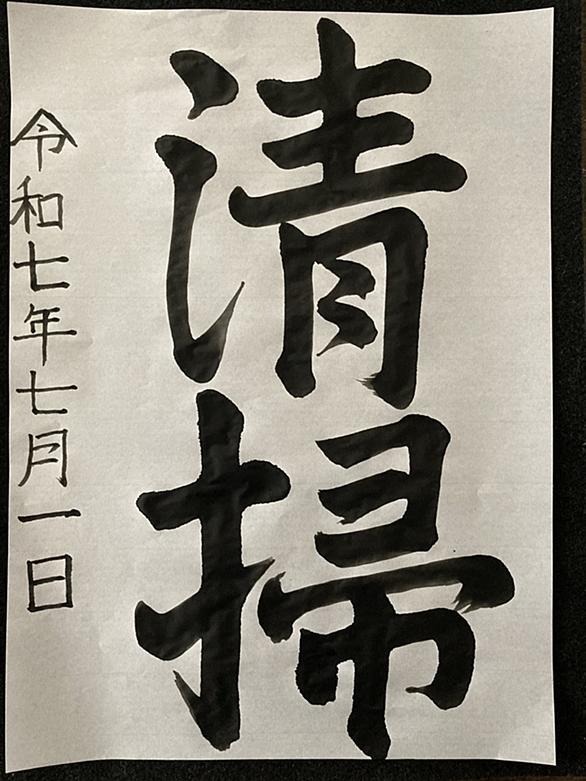 清掃
令和七年七月一日